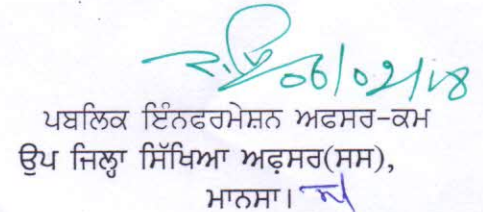 06/02/18
ਪਬਲਿਕ ਇੰਨਫਰਮੇਸ਼ਨ ਅਫਸਰ-ਕਮ
ਉਪ ਜਿਲ੍ਹਾ ਸਿੱਖਿਆ ਅਫ਼ਸਰ(ਸਸ),
ਮਾਨਸਾ।